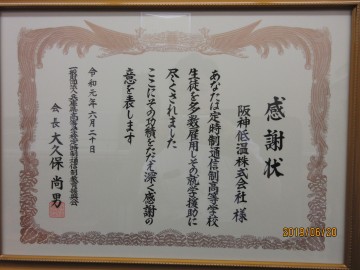 感謝状
阪神低温株式会社 様
あなたは定時制通信制高等学校
生徒を多数雇用しその就学援助に
尽くされました
ここにその功績をたたえ深く感謝の
意を表します
令和元年六月二十日
会長 大久保 尚男
2019/06/30